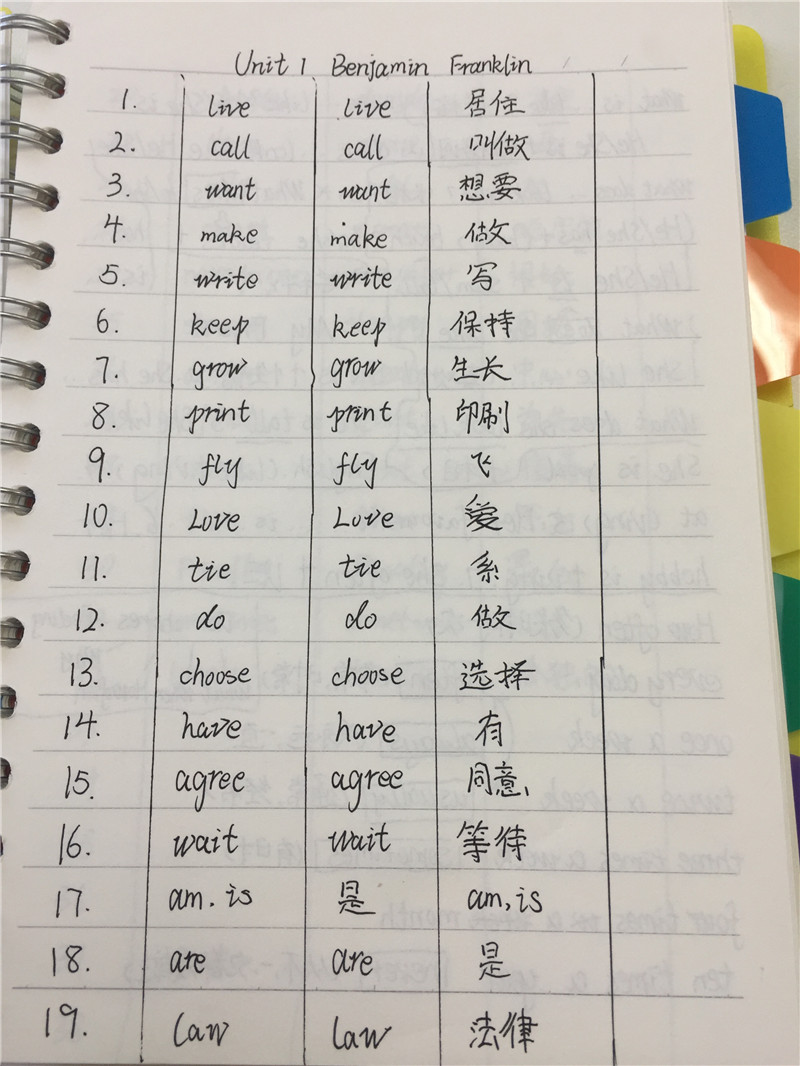 Unit 1 Benjamin Franklin
1. live live 居住
2. call call 叫做
3. want want 想要
4. make make 做
5. write write 写
6. keep keep 保持
7. grow grow 生长
8. print print 印刷
9. fly fly 飞
10. Love Love 爱
11. tie tie 系
12. do do 做
13. choose choose 选择
14. have have 有
15. agree agree 同意
16. wait wait 等待
17. am. is 是 am, is
18. are are 是
19. Law law 法律